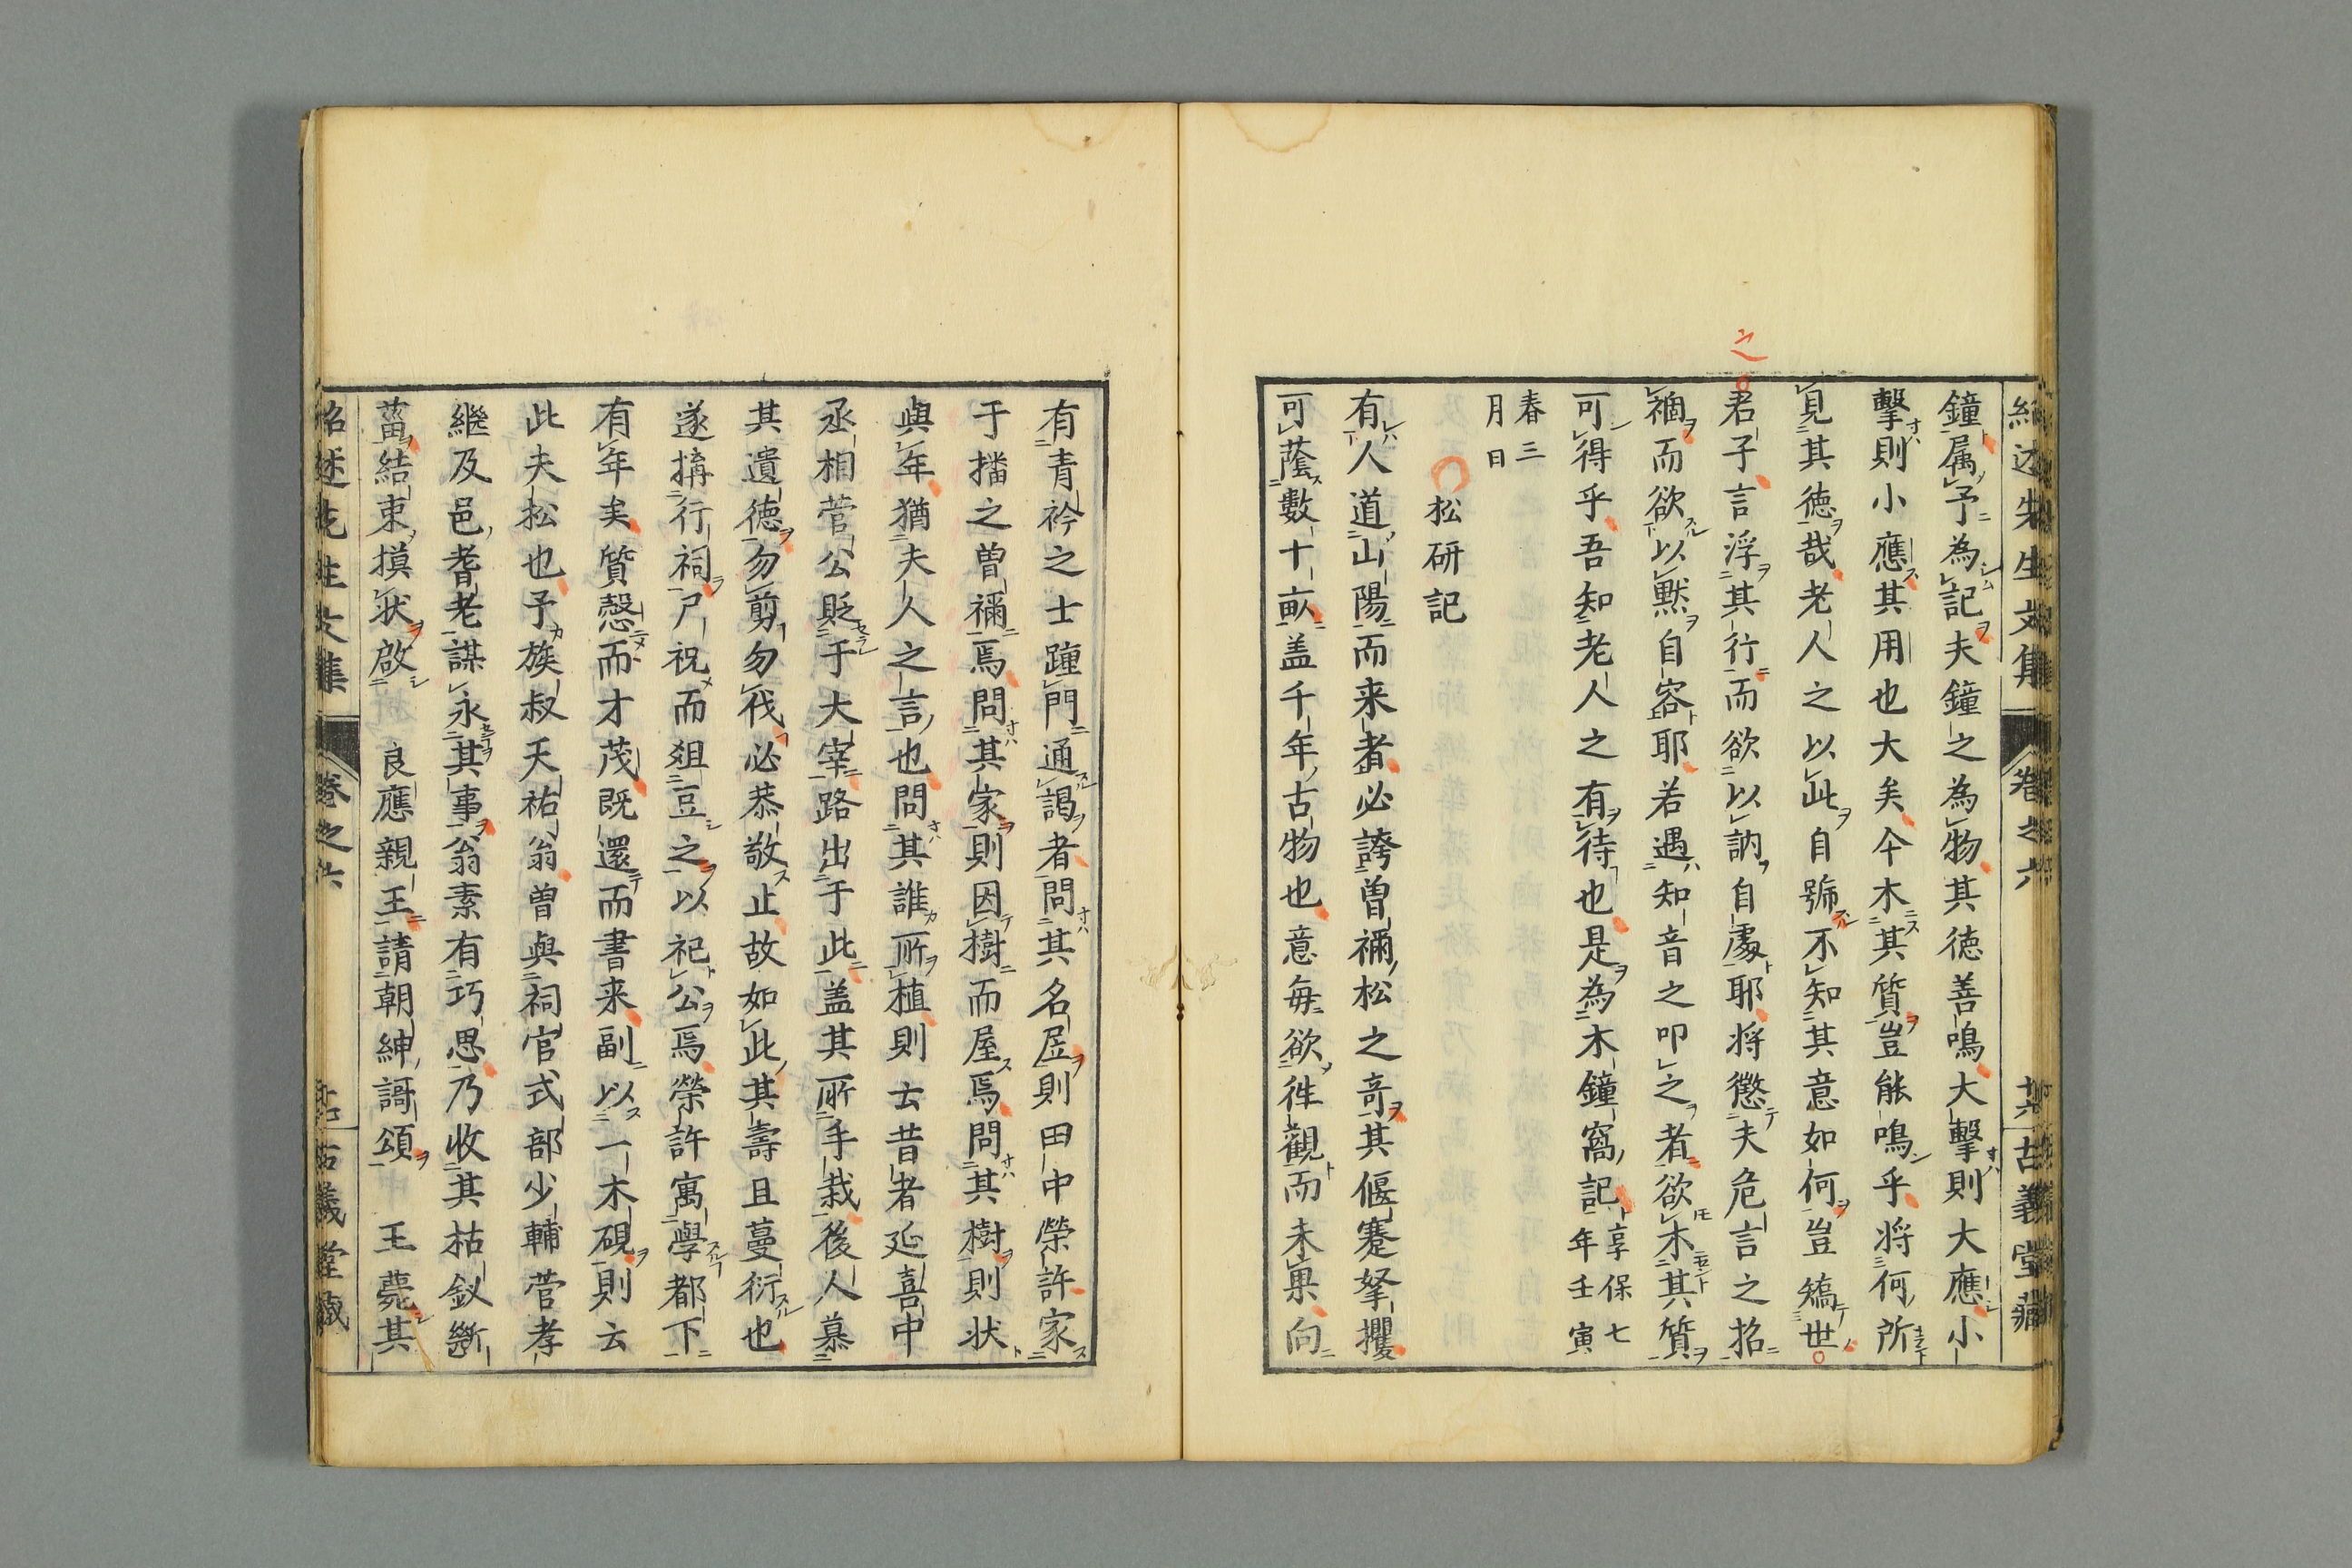 紹述先生文集 卷之六 古義堂藏
鐘属予為記夫鐘之為物其徳善鳴大擊則大應小
擊則小應其用也大矣今木其質豈能鳴乎将何所
見其徳哉老人之以此自號不知其意如何豈矯世
之
君子言浮其行而欲以訥自處耶将懲夫危言之招
禍而欲以默自容耶若遇知音之叩之者欲木其質
可得乎吾知老人之有待也是為木鐘窩記享保七
年壬寅
春三
月日
松研記
有人道山陽而来者必誇曽禰松之奇其偃蹇拏攫
可蔭數十畝盖千年古物也意毎欲徃觀而未果向
有青衿之士踵門通謁者問其名居則田中榮許家
于播之曽禰焉問其家則因樹而屋焉問其樹則状
與年猶夫人之言也問其誰所植則云昔者延喜中
丞相菅公貶于大宰路出于此盖其所手栽後人慕
其遺徳勿剪勿伐必恭敬止故如此其壽且蔓衍也
遂搆行祠尸祝而爼豆之以祀公焉榮許寓學都下
有年矣質愨而才茂既還而書来副以一木硯則云
此夫松也予族叔天祐翁曽與祠官式部少輔菅孝
繼及邑耆老謀永其事翁素有巧思乃收其枯釵斷
葘結束摸状啟 良應親王請朝紳謌頌 王薨其
紹述先生文集 卷之六 古義堂藏